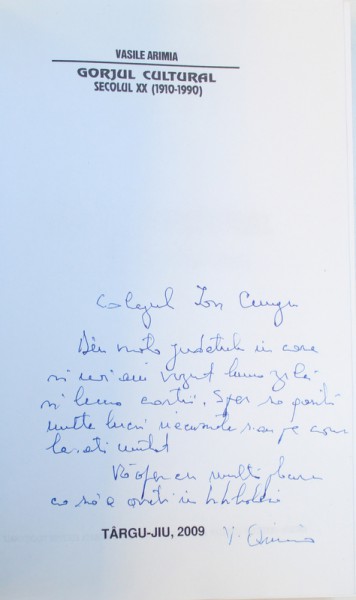 VASILE ARIMIA
GORJUL CULTURAL
SECOLUL XX (1910-1990)
Colegul Ion
Din județul în care
și noi am văzut lumina zilei
și lumea cărții. Sper să
multe lucruri necunoscute sau pe care
le-ați uitat
Vă ofer cu multă plăcere
ca să o aveți în bibliotecă
TÂRGU-JIU, 2009
V. Arimia